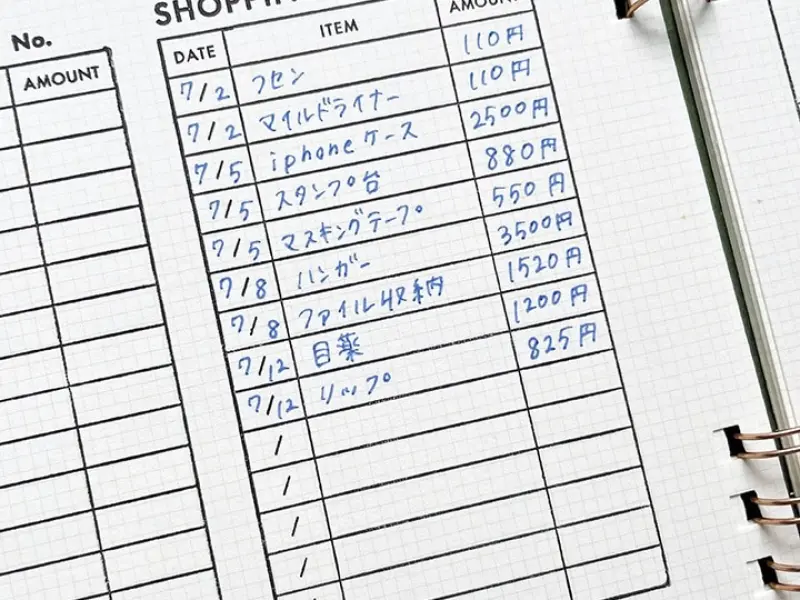 No.
AMOUNT
SHOPPIN
DATE ITEM AMOUNT
7/2 フセン 110円
7/2 マイルドライナー 110円
7/5 iphoneケース 2500円
7/5 スタンプ台 880円
7/5 マスキングテープ 550円
7/8 ハンガー 3500円
7/8 ファイル収納 1520円
7/12 目薬 1200円
7/12 リップ 825円
/
/
/
/